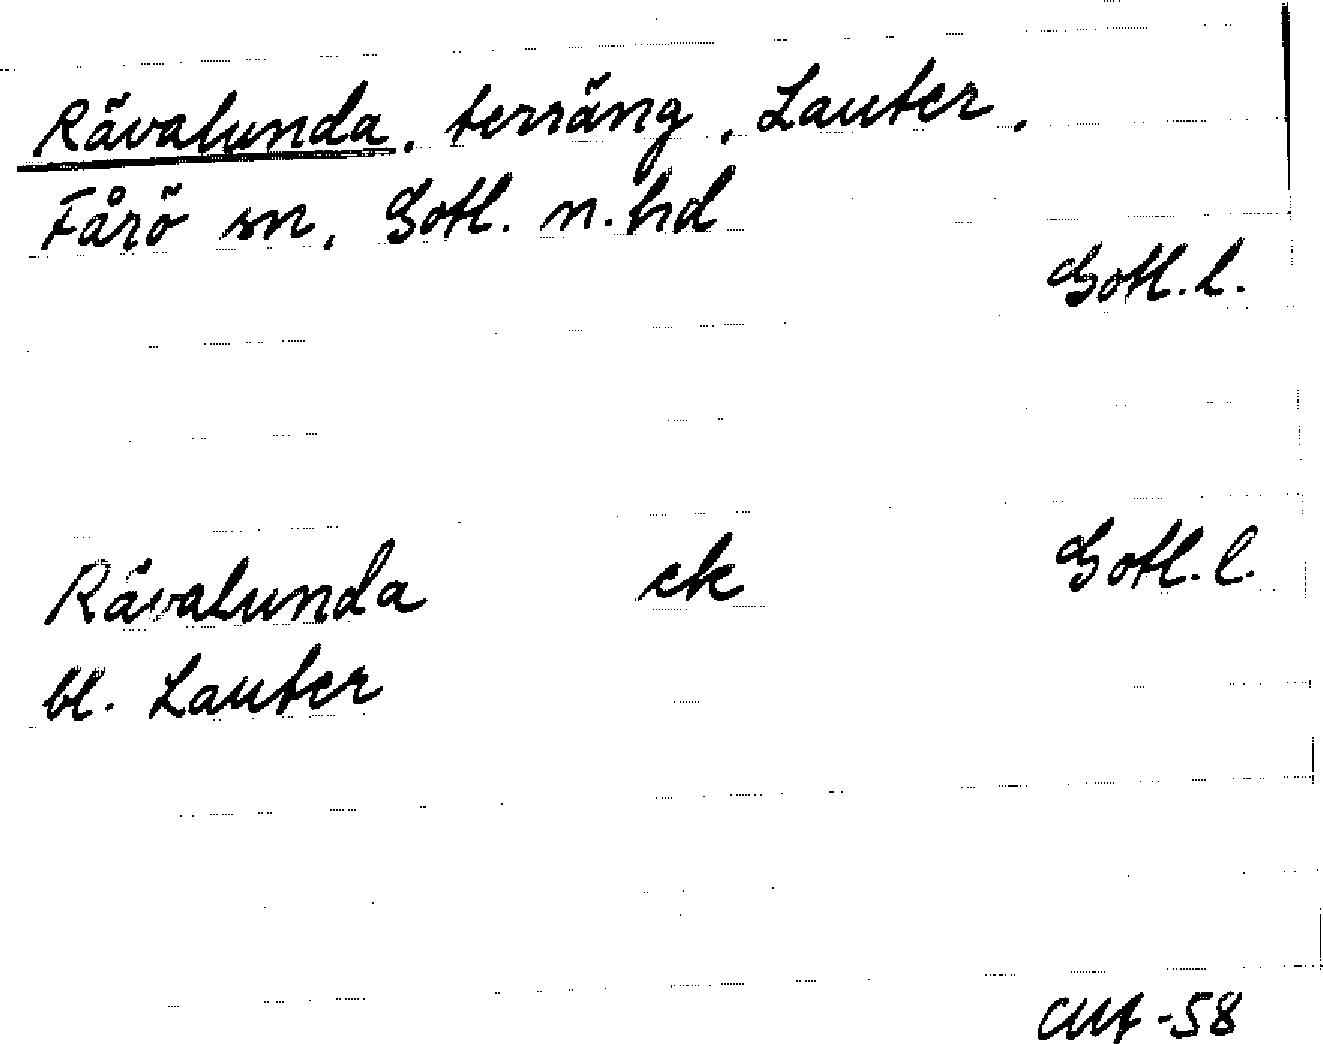 Rävalunda, terräng, Lauter,
Fårö sn, Gotl. n. hd
Gotl. l.
Rävalunda ek Gotl. l.
bl. Lauter
-58